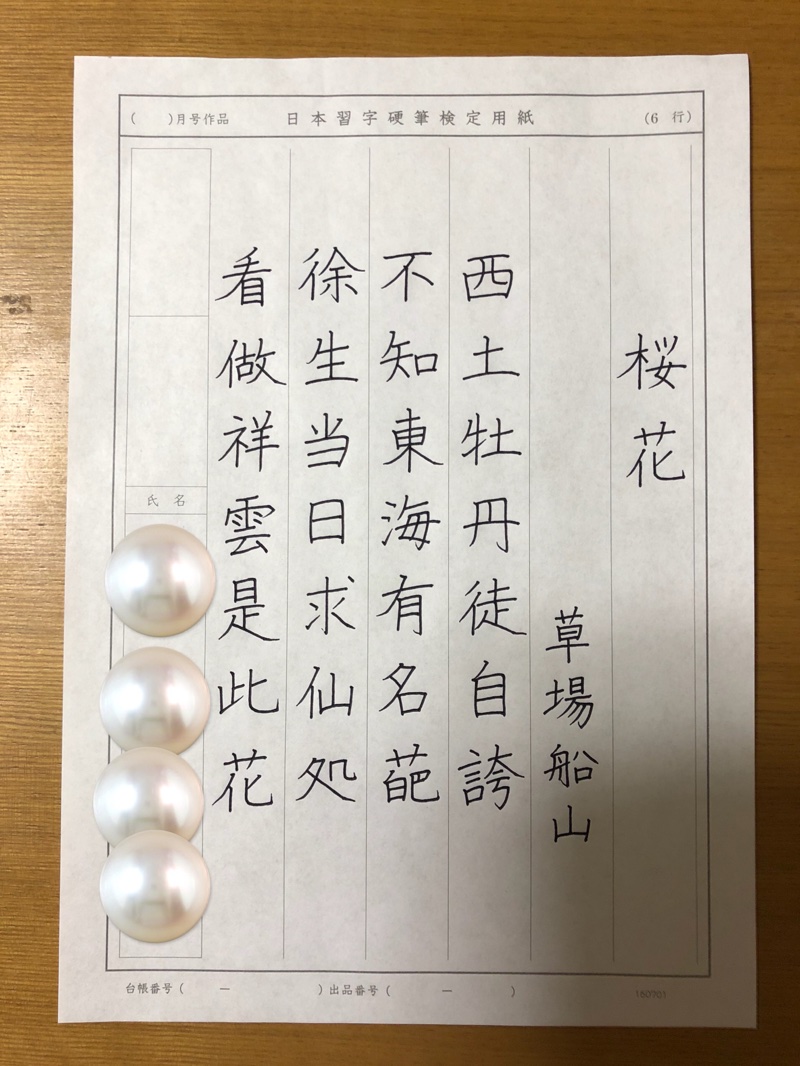 (　　)月号作品　日本習字硬筆検定用紙　(6　行)
桜花
草場船山
西土牡丹徒自誇
不知東海有名葩
徐生当日求仙処
看做祥雲是此花
氏名
台帳番号(　　ー　　)出品番号(　　ー　　)　160701